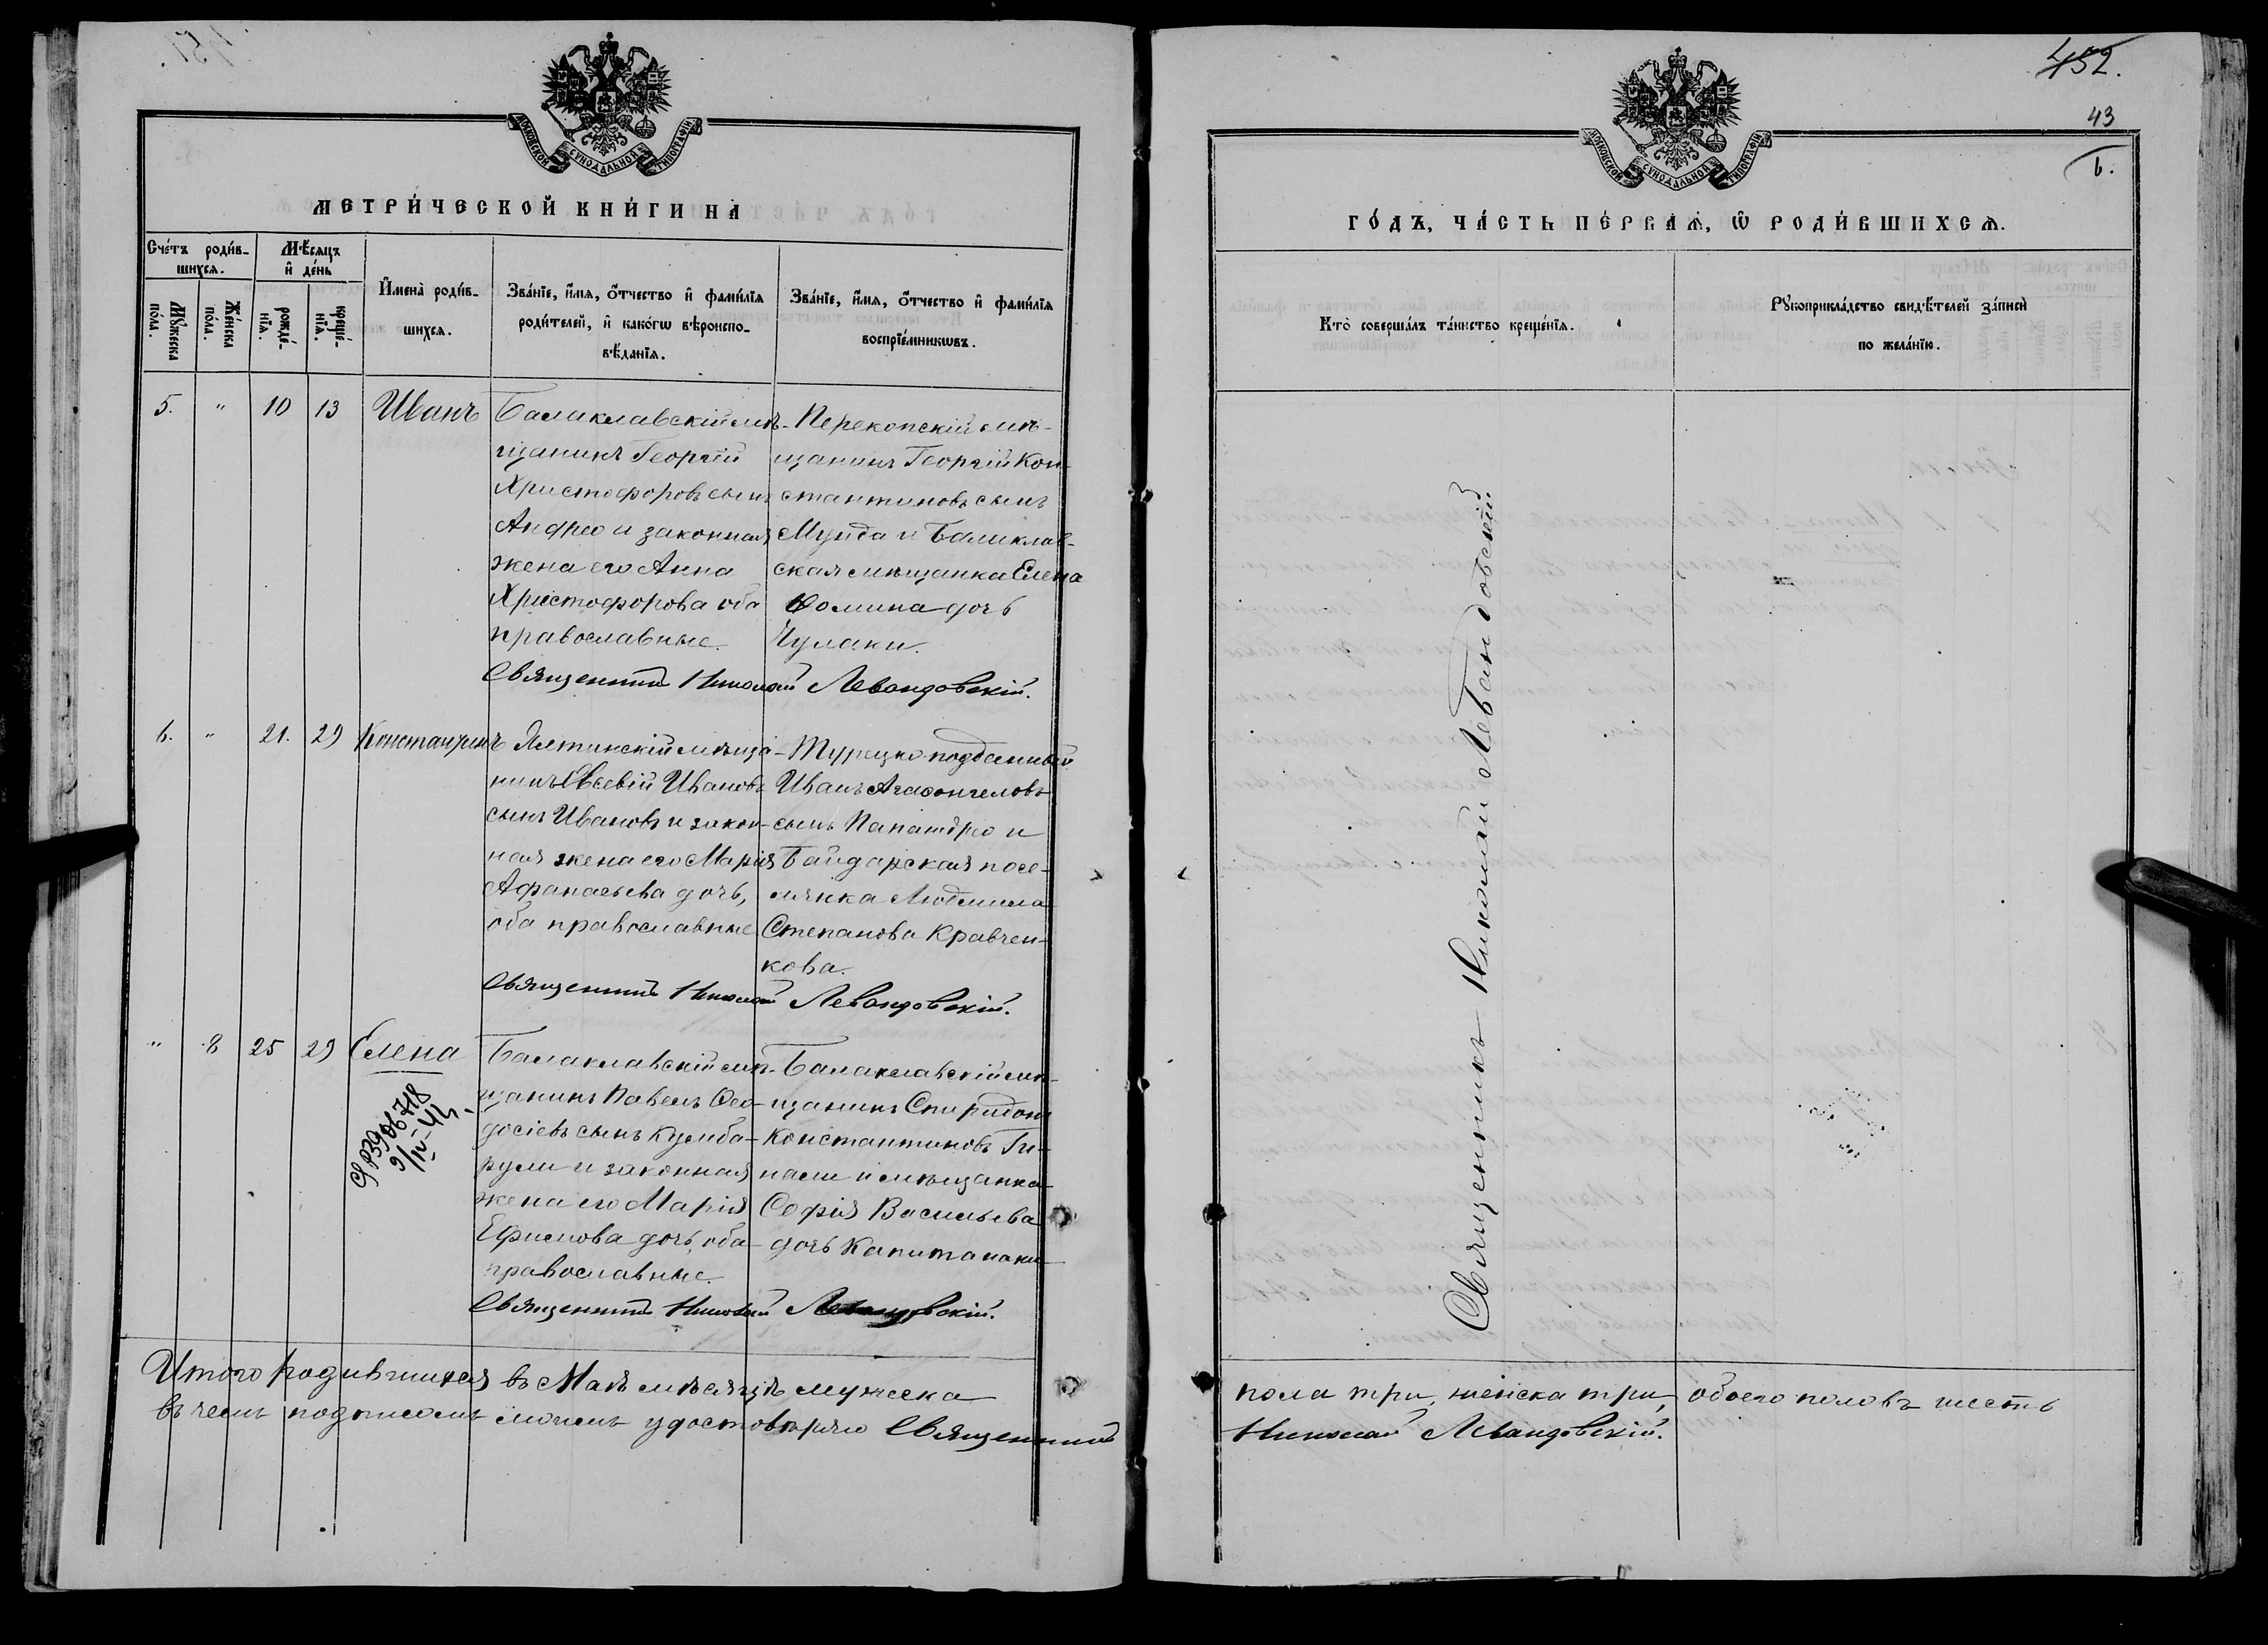 МОСКОВСКОЙ СѴНОДАЛЬНОЙ ТИПОГРАФІИ
МЕТРИ́ЧЕСКОЙ КНИ́ГИ НА
Сче́тъ роди́вшихсѧ.
Мѣ́сѧцъ и҆ де́нь
И҆мена̀ роди́вшихсѧ.
Зва́нїе, и҆́мѧ, ѻ҆́тчество и҆ фами́лїѧ родителей, и҆ како́гѡ вѣроисповѣ́данїѧ.
Зва́нїе, и҆́мѧ, ѻ҆́тчество и҆ фами́лїѧ воспрїе́мникѡвъ.
Мꙋ́жеска по́ла.
Же́нска по́ла.
рожде́нїѧ.
креще́нїѧ.
5. " 10 13 Иванъ
Балаклавскій мѣ-
щанинъ Георгій
Христофоровъ сынъ
Андрео и законная
жена его Анна
Христофорова оба
православные.
Перекопскій мѣ-
щанинъ Георгій Кон-
стантиновъ сынъ
Мунда и Балаклав-
ская мѣщанка Елена
Ѳомина дочь
Чулаки.
Священникъ Николай Левандовскій.
6. " 21. 29 Константинъ
Ялтинскій мѣща-
нинъ Евсевій Ивановъ
сынъ Ивановъ и закон-
ная жена его Марія
Афанасьева дочь,
оба православные
Турецко-подданный
Иванъ Агаѳангеловъ
сынъ Папандрео и
Байдарская посе-
лянка Людмила
Степанова Кравчен-
кова.
Священникъ Николай Левандовскій.
" 8 25 29 Елена
9/IV-41
Балаклавскій мѣ-
щанинъ Павелъ Ѳео-
досіевъ сынъ Кумба-
рули и законная
жена его Марія
Ефимова дочь, оба
православные.
Балаклавскій мѣ-
щанинъ Спиридонъ
Константиновъ Ги-
нали и мѣщанка
Софія Васильева
дочь Капитанаки
Священникъ Николай Левандовскій.
Итого родившихся въ Маѣ мѣсяцѣ мужеска
въ чемъ подписомъ моимъ удостовѣряю Священникъ
452.
43
6.
МОСКОВСКОЙ СѴНОДАЛЬНОЙ ТИПОГРАФІИ
ГО́ДЪ, ЧА́СТЬ ПЕ́РВАѦ, Ѡ҆ РОДИ́ВШИХСѦ.
Кто̀ соверша́лъ та́инство креще́нїѧ.
Рꙋкоприкла́дство свидѣ́телей за́писи по жела́нїю.
Священникъ Николай Левандовскій
пола три, женска три, обоего половъ шесть
Николай Левандовскій.